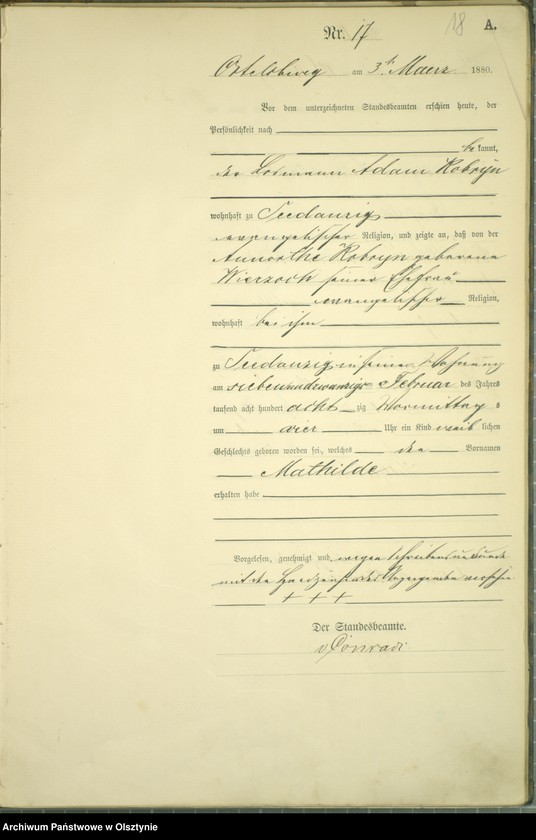 18 A.
Nr. 17
am 3t Maerz 1880.
Vor dem unterzeichneten Standesbeamten erschien heute, der
Persönlichkeit nach
be kannt,
der Losmann Adam Kobryn
wohnhaft zu Seedanzig
evangelischer Religion, und zeigte an, daß von der
Annorthe Kobryn geborene
Wierzoch seiner Ehefrau
evangelischer Religion,
wohnhaft bei ihm
zu Seedanzig in seiner Wohnung
am siebenundzwanzigs Februar des Jahres
tausend acht hundert acht zig Vormittag s
um vier Uhr ein Kind weib lichen
Geschlechts geboren worden sei, welches den Vornamen
Mathilde
erhalten habe
Vorgelesen, genehmigt und wegen Schreibensunkunde
mit den Handzeichen des Anzeigenden versehen
+ + +
Der Standesbeamte.
v Conradi
Archiwum Państwowe w Olsztynie